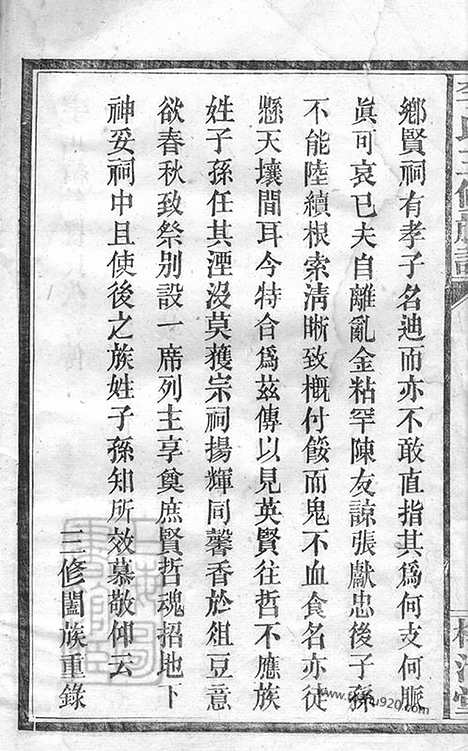 鄉賢祠有孝子名迪而亦不敢直指其爲何支何脈
眞可哀已夫自離亂金粘罕陳友諒張獻忠後子孫
不能陸續根索淸晰致概付餒而鬼不血食名亦徒
懸天壤間耳今特合爲茲傳以見英賢往哲不應族
姓子孫任其湮沒莫獲宗祠揚輝同馨香於俎豆意
欲春秋致祭别設一席列主享奠庶賢哲魂招地下
神妥祠中且使後之族姓子孫知所效慕敬仰云
三修闔族重錄